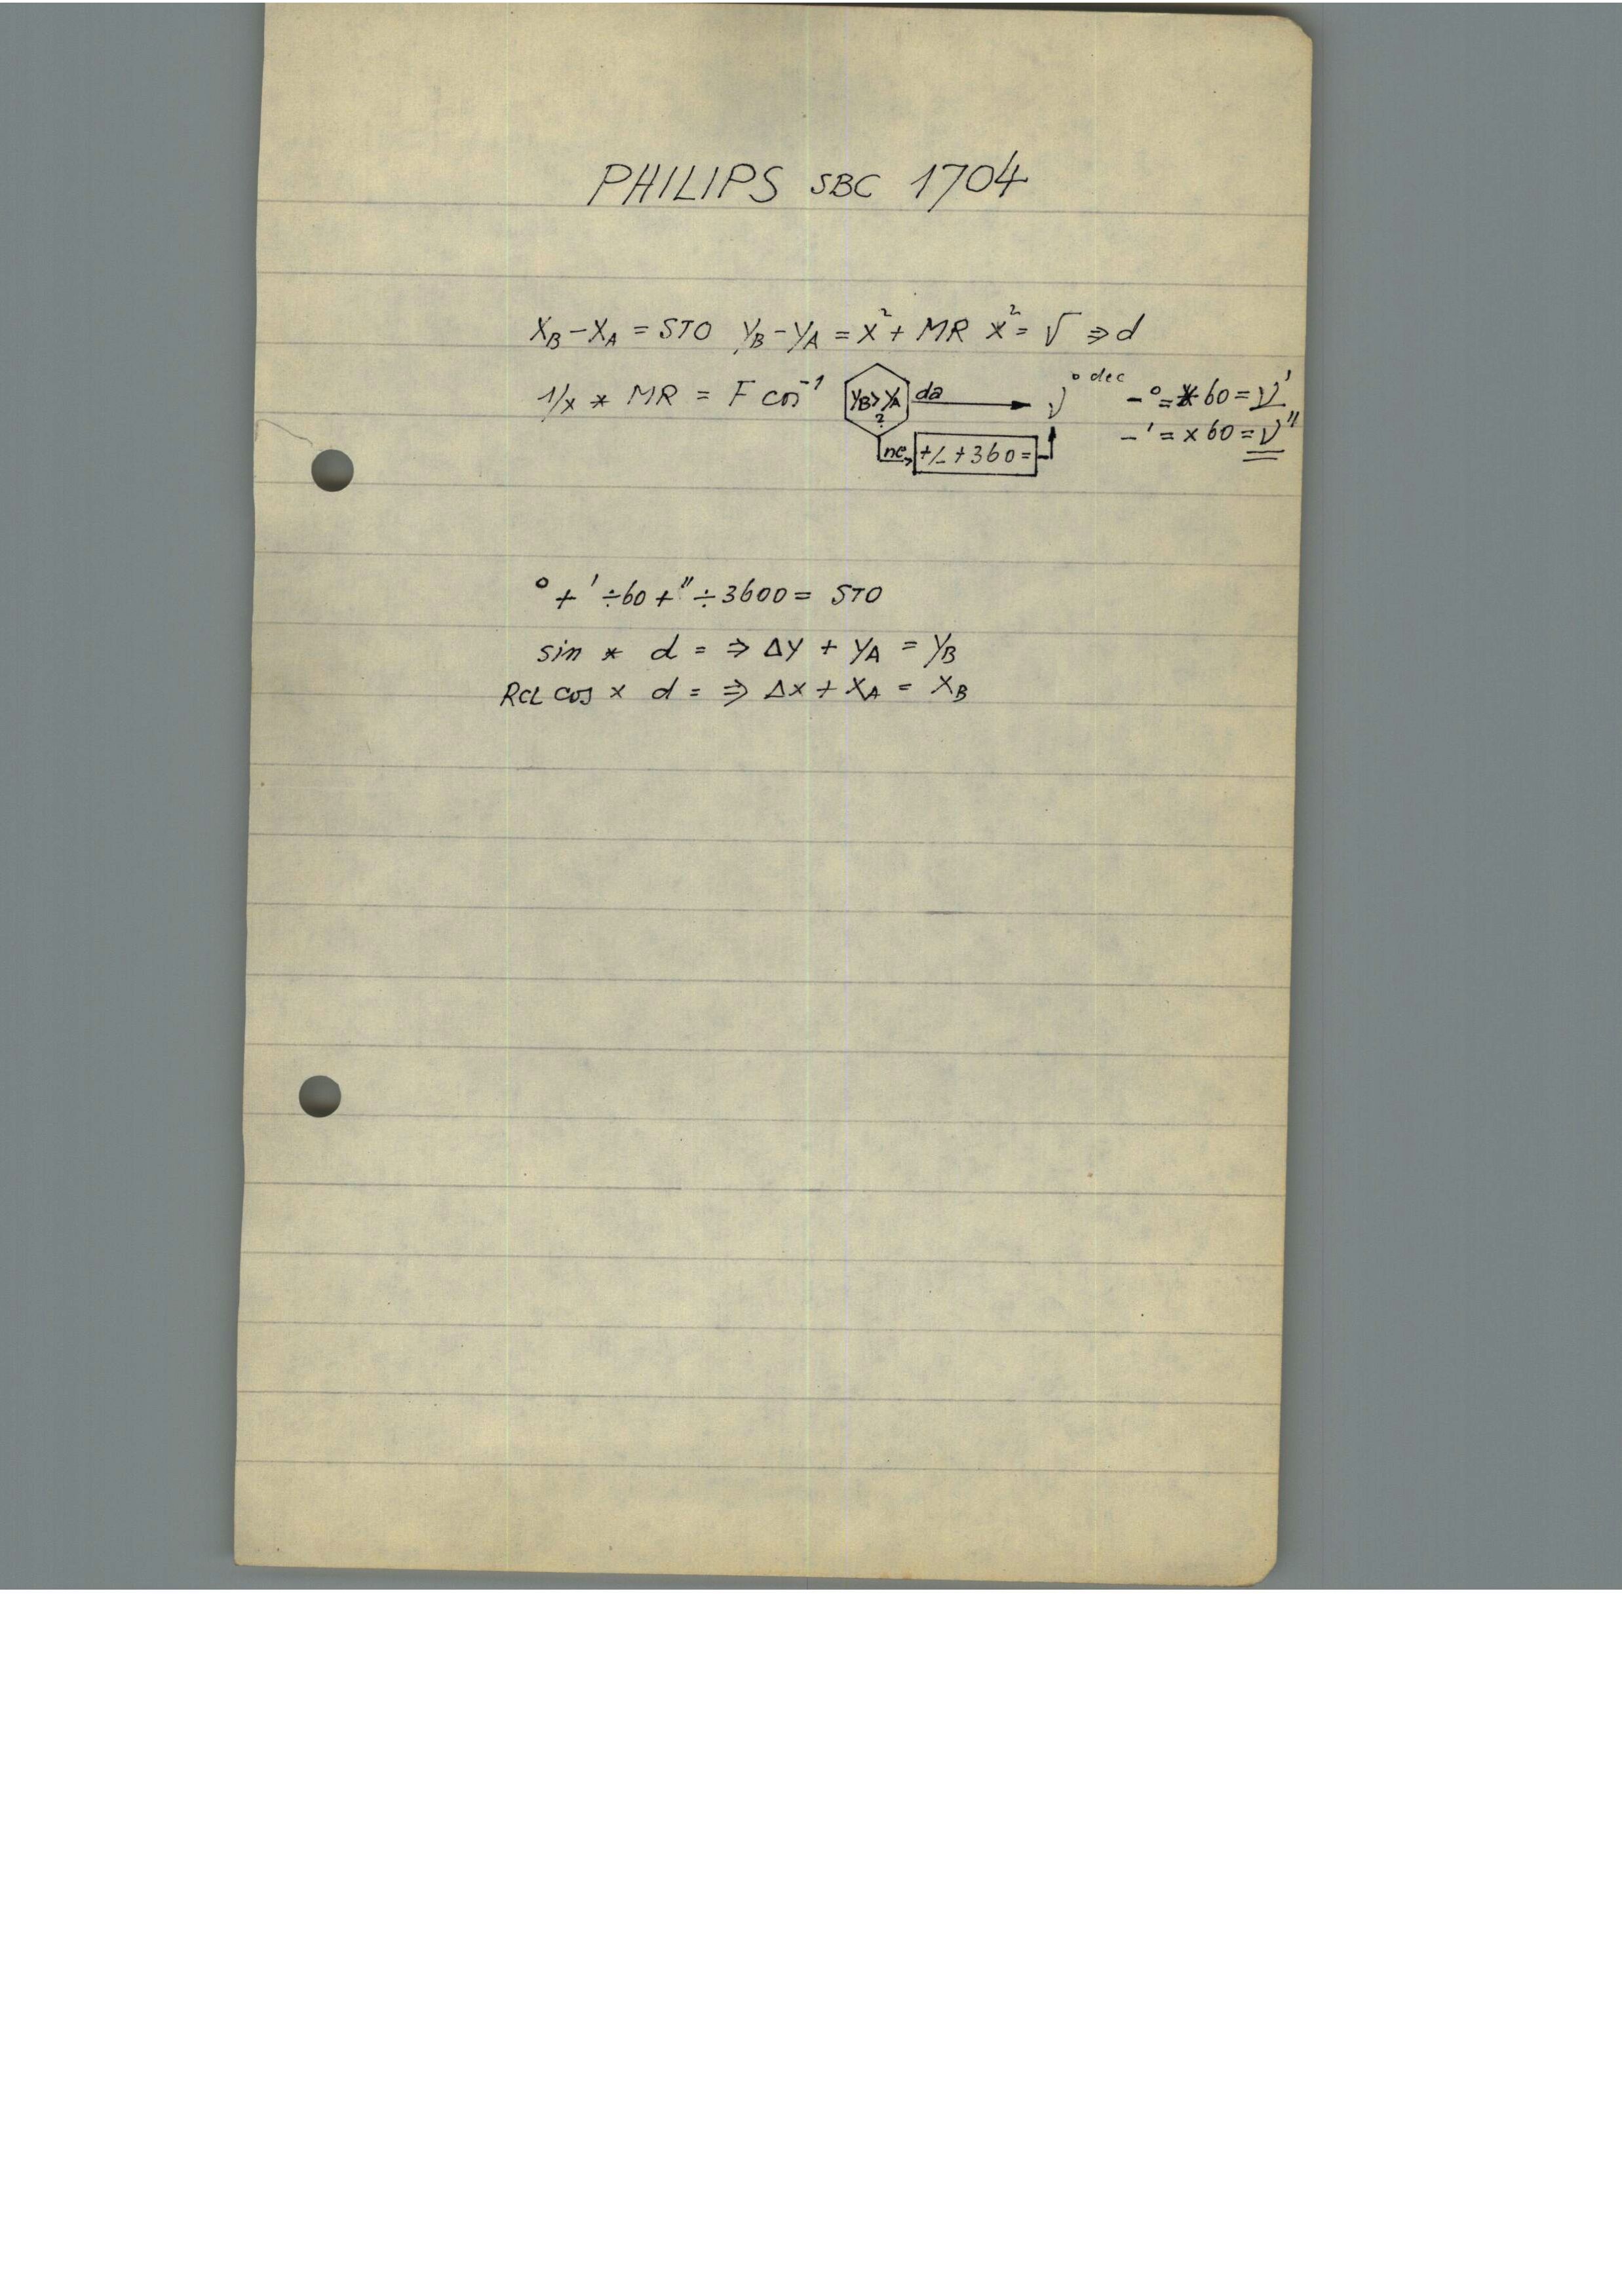 PHILIPS SBC 1704
X_B - X_A = STO Y_B - Y_A = X² + MR X² = √ ⇒ d
1/x * MR = F cos⁻¹ Y_B > Y_A ? da → ν ° dec - ° = * 60 = ν'
ne → +/- + 360 = - ' = x 60 = ν"
° + ' ÷ 60 + " ÷ 3600 = STO
sin * d = ⇒ Δy + Y_A = Y_B
RCL cos x d = ⇒ Δx + X_A = X_B